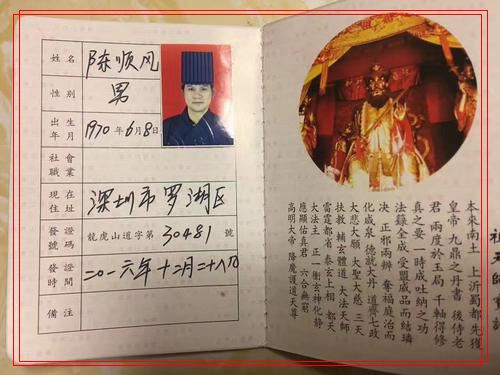 姓名 陈顺风
性别 男
出生年月 1970年6月8日
社會職業
現在住址 深圳市罗湖区
發證號碼 龍虎山道字第30481號
發證時間 二〇一六年十二月二十八日
備注
本來南土 上沂蜀都 先獲
皇帝 九鼎之丹書 後侍老
君 兩度於玉局 千軸得修
真之要 一時成吐納之功
法籙全成 受盟威品而結璘
決 正邪兩辧 奪福庭治而
化咸泉 德就大丹 道齊七政
大悲大願 大聖大慈 三天
扶教 輔玄體道 大法天師
雷霆都省 泰玄上相 都天
大法主 正一衝玄神化静
應顯佑真君 六合無窮
高明大帝 降魔護道天尊